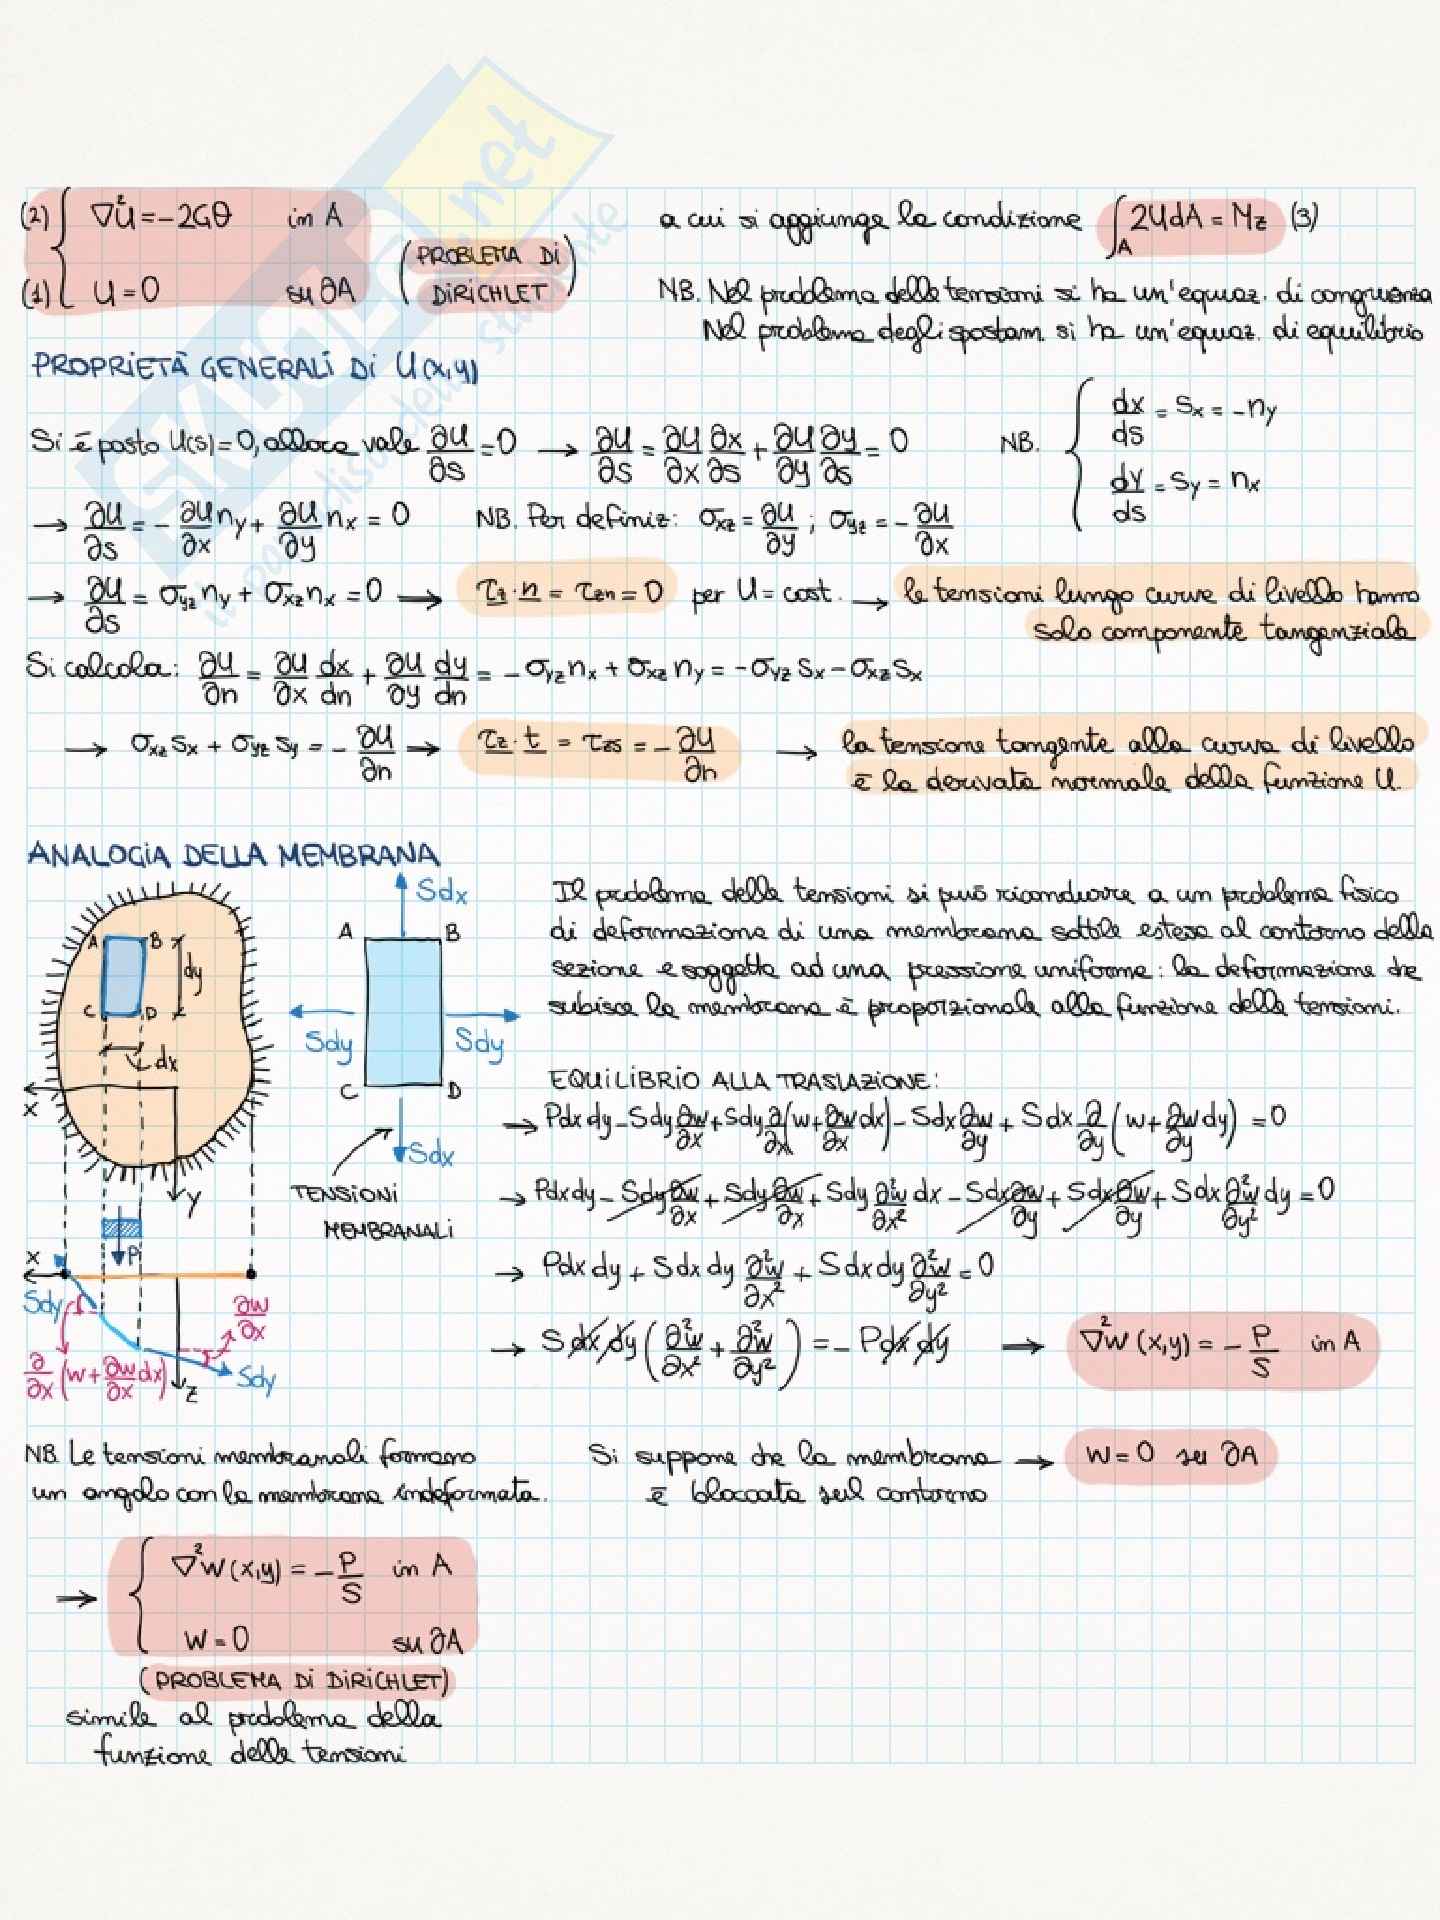 (2) { ∇²U = -2Gθ in A
(1) U = 0 su ∂A
(PROBLEMA DI DIRICHLET)
a cui si aggiunge la condizione ∫_A 2UdA = Mz (3)
NB. Nel problema delle tensioni si ha un'equaz. di congruenza
Nel problema degli spostam. si ha un'equaz. di equilibrio
PROPRIETÀ GENERALI DI U(x,y)
Si è posto U(s)=0, allora vale ∂U/∂s = 0 → ∂U/∂s = ∂U/∂x ∂x/∂s + ∂U/∂y ∂y/∂s = 0
NB. { dx/ds = Sx = -ny
dy/ds = Sy = nx
→ ∂U/∂s = - ∂U/∂x ny + ∂U/∂y nx = 0 NB. Per definiz: σxz = ∂U/∂y ; σyz = - ∂U/∂x
→ ∂U/∂s = σyz ny + σxz nx = 0 → τz · n = τzn = 0 per U = cost. → le tensioni lungo curve di livello hanno
solo componente tangenziale
Si calcola: ∂U/∂n = ∂U/∂x dx/dn + ∂U/∂y dy/dn = - σyz nx + σxz ny = - σyz Sx - σxz Sx
→ σxz Sx + σyz Sy = - ∂U/∂n → τz · t = τzs = - ∂U/∂n → la tensione tangente alla curva di livello
è la derivata normale della funzione U.
ANALOGIA DELLA MEMBRANA
A B C D dy dx x y
Sdx
A B
Sdy Sdy
C D
Sdx
TENSIONI
MEMBRANALI
P
x
Sdy
∂w/∂x
∂/∂x (w + ∂w/∂x dx)
z
Sdy
Il problema delle tensioni si può ricondurre a un problema fisico
di deformazione di una membrana sottile estesa al contorno della
sezione e soggetta ad una pressione uniforme: la deformazione che
subisce la membrana è proporzionale alla funzione delle tensioni.
EQUILIBRIO ALLA TRASLAZIONE:
→ Pdxdy - Sdy ∂w/∂x + Sdy ∂/∂x (w + ∂w/∂x dx) - Sdx ∂w/∂y + Sdx ∂/∂y (w + ∂w/∂y dy) = 0
→ Pdxdy - Sdy ∂w/∂x + Sdy ∂w/∂x + Sdy ∂²w/∂x² dx - Sdx ∂w/∂y + Sdx ∂w/∂y + Sdx ∂²w/∂y² dy = 0
→ Pdxdy + Sdxdy ∂²w/∂x² + Sdxdy ∂²w/∂y² = 0
→ Sdxdy (∂²w/∂x² + ∂²w/∂y²) = - Pdxdy → ∇²w(x,y) = - P/S in A
NB. Le tensioni membranali formano
un angolo con la membrana indeformata.
Si suppone che la membrana → w = 0 su ∂A
è bloccata sul contorno
→ { ∇²w(x,y) = - P/S in A
w = 0 su ∂A
(PROBLEMA DI DIRICHLET)
simile al problema della
funzione delle tensioni